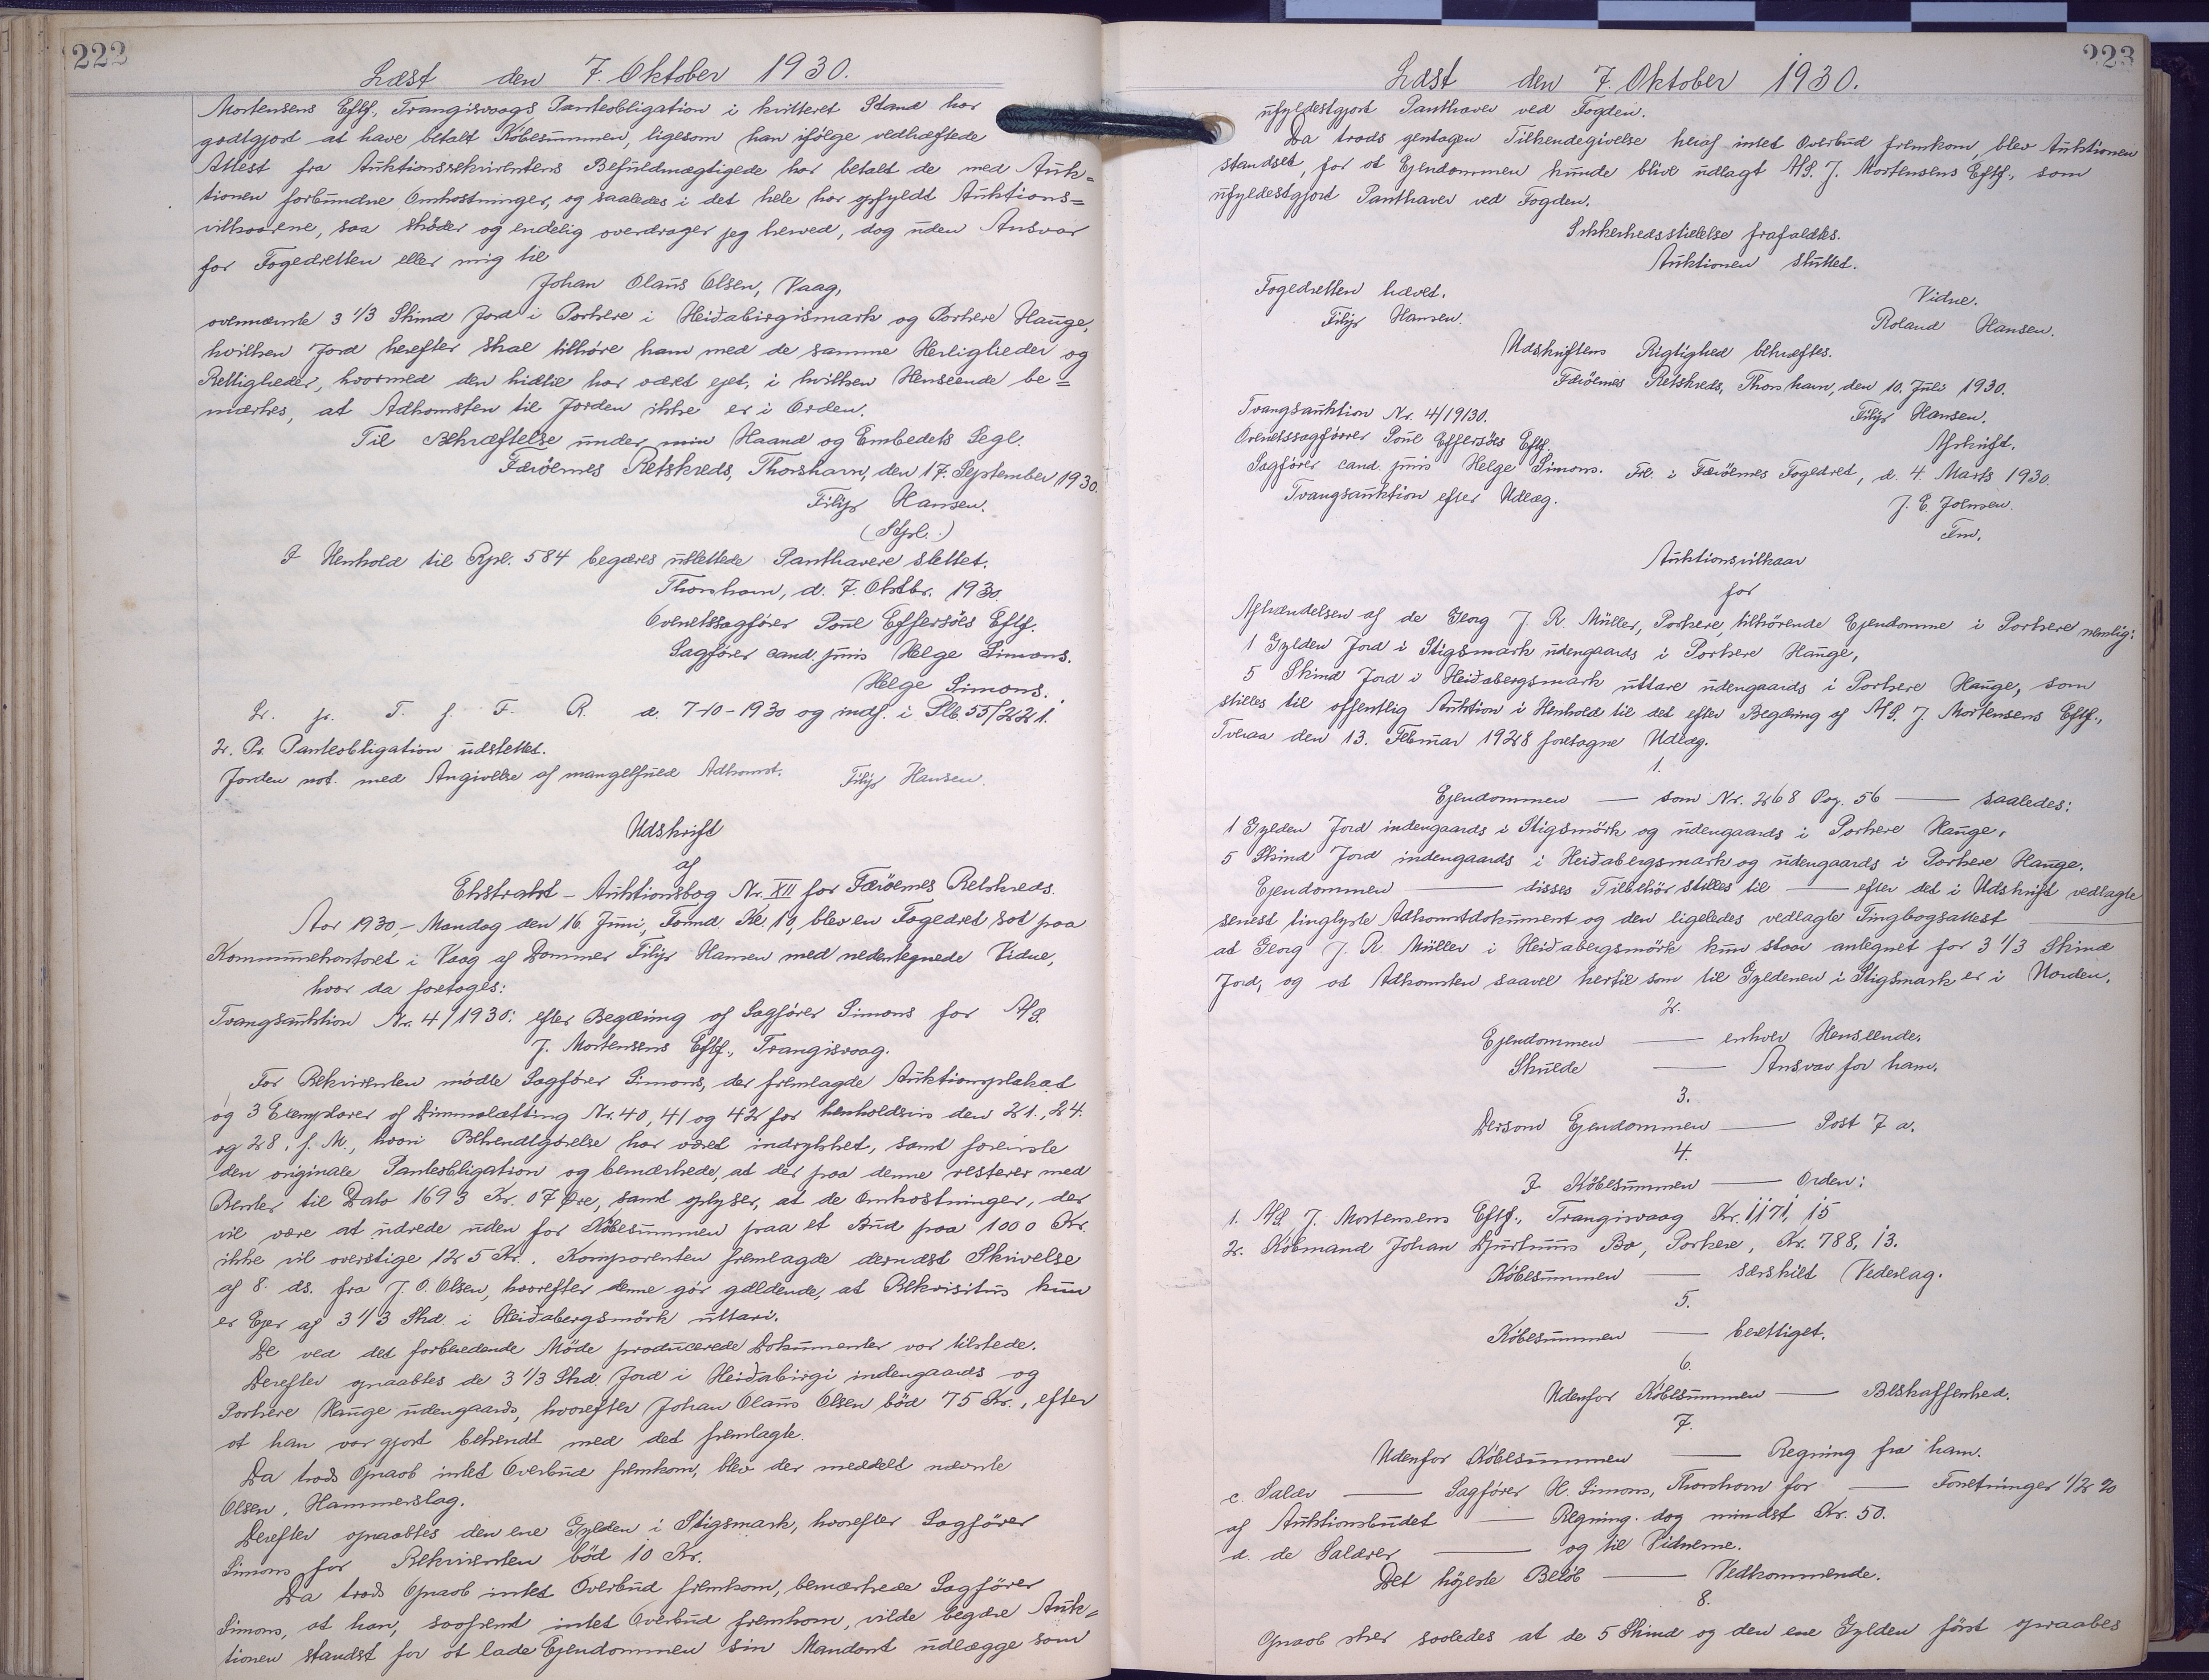 222
Læst den 7. Oktober 1930.
Mortensens Eftf., Trangisvaags Panteobligation i kvitteret Stand har
godtgjort at have betalt Købesummen, ligesom han ifølge vedhæftede
Attest fra Auktionsrekvirentens Befuldmægtigede har betalt de med Auk=
tionen forbundne Omkostninger, og saaledes i det hele har opfyldt Auktions=
vilkaarene, saa skøder og endelig overdrager jeg herved, dog uden Ansvar
for Fogedretten eller mig til
Johan Olaus Olsen, Vaag,
ovennævnte 3 1/3 Skind Jord i Porkere i Heiðabirgismark og Porkere Hauge,
hvilken Jord herefter skal tilhøre ham med de samme Herligheder og
Rettigheder, hvormed den hidtil har været ejet, i hvilken Henseende be=
mærkes, at Adkomsten til Jorden ikke er i Orden.
Til Bekræftelse under min Haand og Embedets Segl.
Færöernes Retskreds, Thorshavn, den 17. September 1930.
Filip Hansen.
(Sgl.)
I Henhold til Rpl. 584 begæres udslettede Panthavere slettet.
Thorshavn, d. 7. Oktbr. 1930.
Overretssagfører Poul Effersöes Eftf.
Sagfører cand. juris Helge Simons.
Helge Simons.
Lr. pr. T. f. F. R. d. 7-10-1930 og indf. i Plb. 55/221.
2. Pr. Panteobligation udslettet.
Jorden not. med Angivelse af mangelfuld Adkomst. Filip Hansen.
Udskrift
af
Ekstrakt-Auktionsbog Nr. XII for Færöernes Retskreds.
Aar 1930,- Mandag den 16. Juni, Formd. Kl. 10, blev en Fogedret sat paa
Kommunekontoret i Vaag af Dommer Filip Hansen med nedentegnede Vidne,
hvor da foretoges:
Tvangsauktion Nr. 4/1930: efter Begæring af Sagfører Simons for A/S.
J. Mortensens Eftf., Trangisvaag.
For Rekvirenten mødte Sagfører Simons, der fremlagde Auktionsplakat
og 3 Exemplarer af Dimmalætting Nr. 40, 41 og 42 for henholdsvis den 21., 24.
og 28. f. M., hvori Bekendtgørelse har været indrykket, samt foreviste
den originale Panteobligation og bemærkede, at der paa denne resterer med
Renter til Dato 1693 Kr. 07 Øre, samt oplyser, at de Omkostninger, der
vil være at udrede uden for Købesummen paa et Bud paa 1000 Kr.
ikke vil overstige 125 Kr.. Komparenten fremlagde dernæst Skrivelse
af 8. ds. fra J. O. Olsen, hvorefter denne gör gældende, at Rekvisitus kun
er Ejer af 3 1/3 Skd. i Heiðabergsmörk uttari.
De ved det forberedende Möde producerede Dokumenter var tilstede.
Derefter opraabtes de 3 1/3 Skd. Jord i Heiðabirgi indengaards og
Porkere Hauge udengaards, hvorefter Johan Olaus Olsen böd 75 Kr., efter
at han var gjort bekendt med det fremlagte.
Da trods Opraab intet Overbud fremkom, blev der meddelt nævnte
Olsen, Hammerslag.
Derefter opraabtes den ene Gylden i Stigsmark, hvorefter Sagfører
Simons for Rekvirenten böd 10 Kr.
Da trods Opraab intet Overbud fremkom, bemærkede Sagfører
Simons, at han, saafremt intet Overbud fremkom, vilde begære Auk=
tionen standset for at lade Ejendommen sin Mandant udlægge som
223
Læst den 7. Oktober 1930.
ufyldestgjort Panthaver ved Fogden.
Da trods gentagen Tilkendegivelse heraf intet Overbud fremkom, blev Auktionen
standset, for at Ejendommen kunde blive udlagt A/S. J. Mortensens Eftf., som
ufyldestgjort Panthaver ved Fogden.
Sikkerhedsstillelse frafaldtes.
Auktionen sluttet.
Fogedretten hævet. Vidne.
Filip Hansen. Roland Hansen.
Udskriftens Rigtighed bekræftes.
Færöernes Retskreds, Thorshavn, den 10. Juli 1930.
Filip Hansen.
Tvangsauktion Nr. 4/1930.
Overretssagfører Poul Effersöes Eftf. Afskrift.
Sagfører cand. juris Helge Simons. Frl. i Færöernes Fogedret, d. 4. Marts 1930.
Tvangsauktion efter Udlæg. J. E. Joensen.
Fm.
Auktionsvilkaar
for
Afhændelsen af de Georg J. R. Müller, Porkere, tilhörende Ejendomme i Porkere nemlig:
1 Gylden Jord i Stigsmark udengaards i Porkere Hauge,
5 Skind Jord i Heiðabergsmark uttare udengaards i Porkere Hauge, som
stilles til offentlig Auktion i Henhold til det efter Begæring af A/S. J. Mortensens Eftf.,
Tveraa den 13. Februar 1928 foretagne Udlæg.
1.
Ejendommen — som Nr. 268 Pag. 56 — saaledes:
1 Gylden Jord indengaards i Stigsmörk og udengaards i Porkere Hauge.
5 Skind Jord indengaards i Heiðabergsmark og udengaards i Porkere Hauge.
Ejendommen — disses Tilbehör stilles til — efter det i Udskrift vedlagte
senest tinglyste Adkomstdokument og den ligeledes vedlagte Tingbogsattest
at Georg J. R. Müller i Heiðabergsmörk kun staar antegnet for 3 1/3 Skind
Jord, og at Adkomsten saavel hertil som til Gyldenen i Stigsmark er i Uorden.
2.
Ejendommen — enhver Henseende.
Skulde — Ansvar for ham.
3.
Dersom Ejendommen — Post 7 a.
4.
I Købesummen — Orden:
1. A/S J. Mortensens Eftf., Trangisvaag Kr. 1171, 15
2. Købmand Johan Djurhuus Bo, Porkere, Kr. 788, 13.
Købesummen — særskilt Vederlag.
5.
Købesummen — berettiget.
6.
Udenfor Købesummen — Beskaffenhed.
7.
Udenfor Købesummen — Regning fra ham.
c. Salær — Sagfører H. Simons, Thorshavn for — Forretninger 1/2 %
af Auktionsbudet — Regning. dog mindst Kr. 50.
d. de Salærer — og til Vidnerne.
Det højeste Beløb — Vedkommende.
8.
Opraab sker saaledes at de 5 Skind og den ene Gylden först opraabes